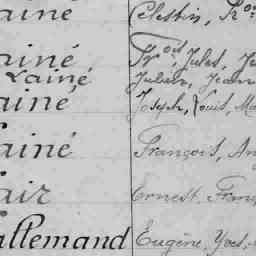 ainé Celestin,
ainé Fr^ois, Jules,
Lainé Julien, Jean
ainé Joseph, Louis, Ma
ainé François, An
air Ernest, Franç
allemand Eugène, Yves,